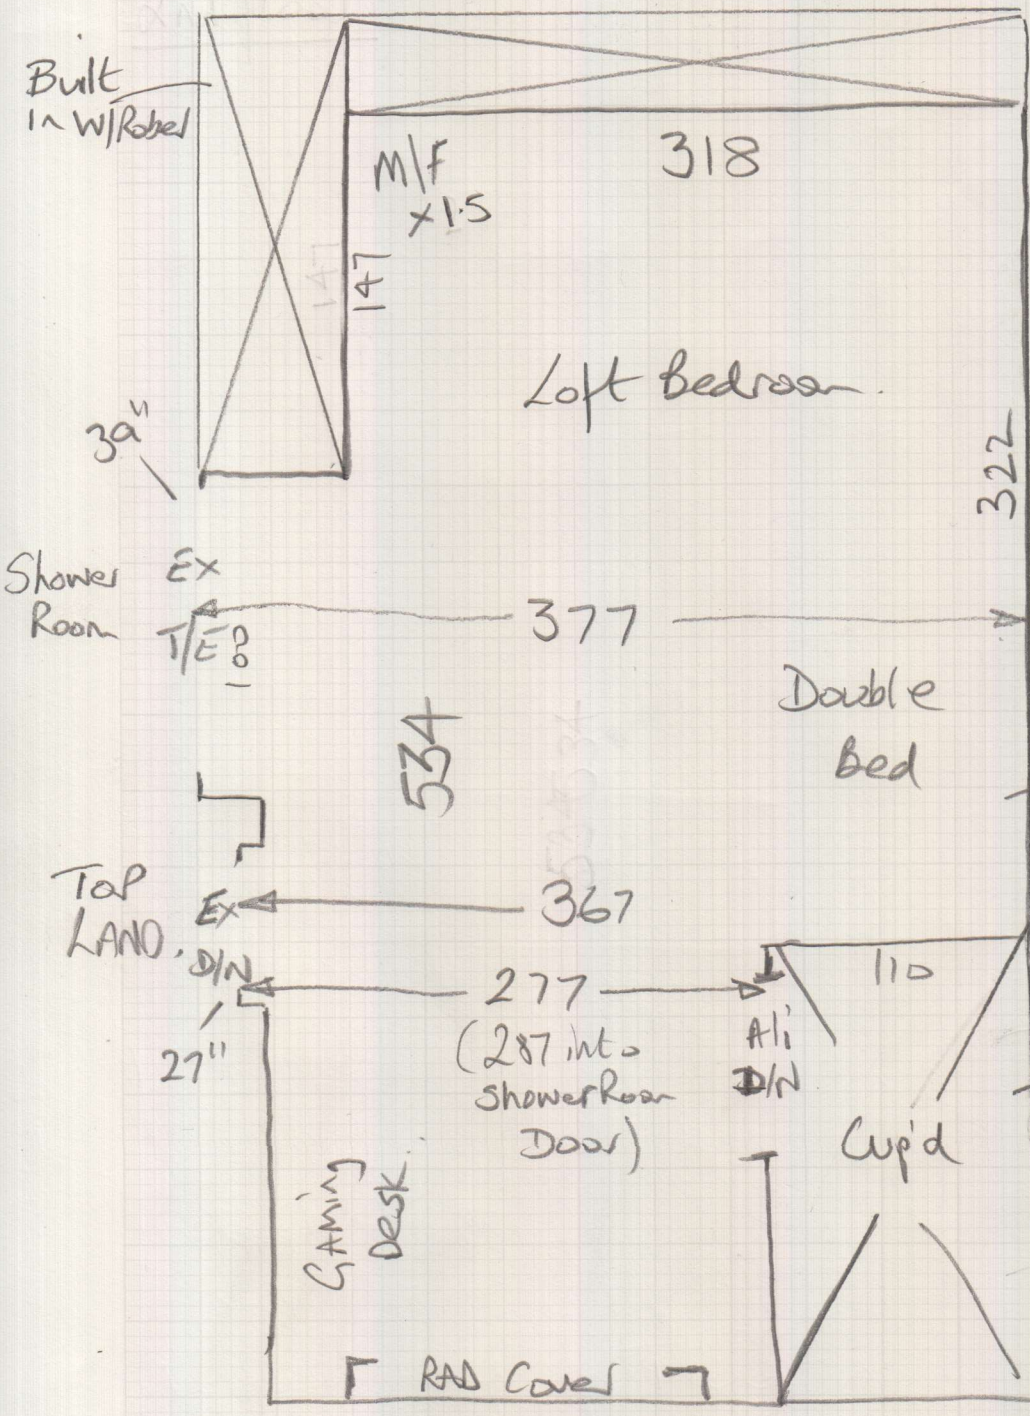 Built
In W/Robes
M/F
x1.5
318
147
Loft Bedroom.
39"
322
Shower
Room
Ex
T/E?
377
Double
Bed
534
TOP
LAND.
Ex
D/N
367
27"
277
(287 into
Shower Room
Door)
110
Ali
D/N
Cup'd
GAMing
Desk.
RAD Cover